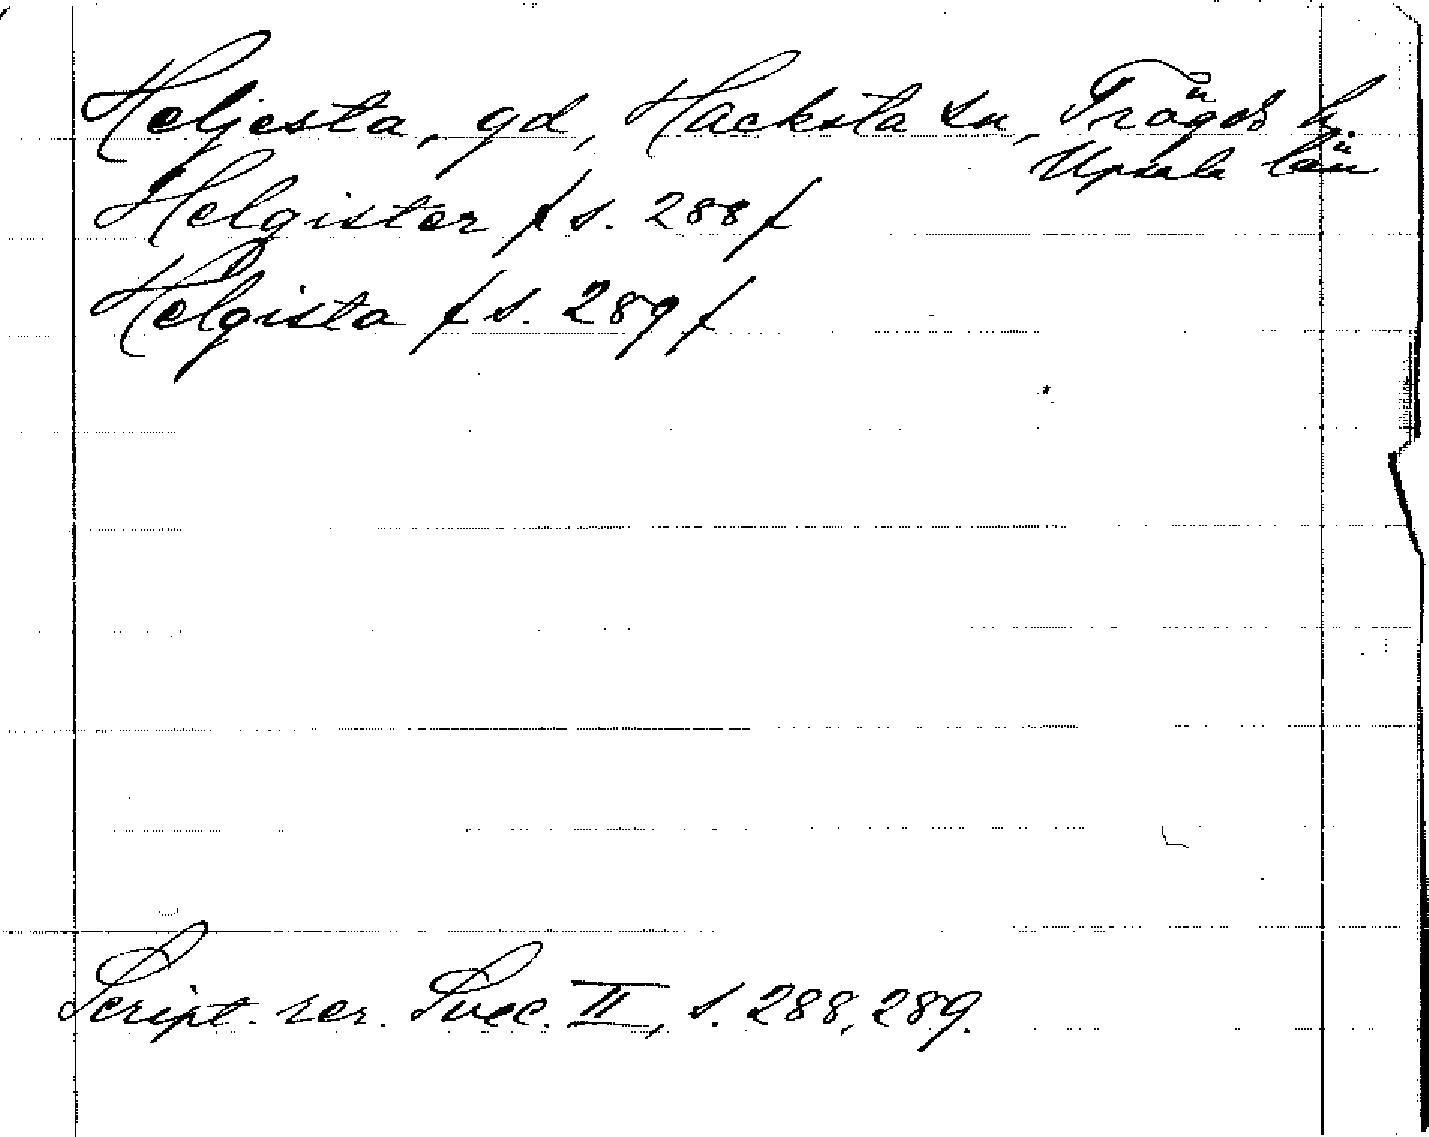 Heljesta, gd, Hacksta sn, Trögds h.
Upsala län
Helgister / s. 288 /
Helgista / s. 289 /
Script. rer. Svec. II, s. 288, 289.